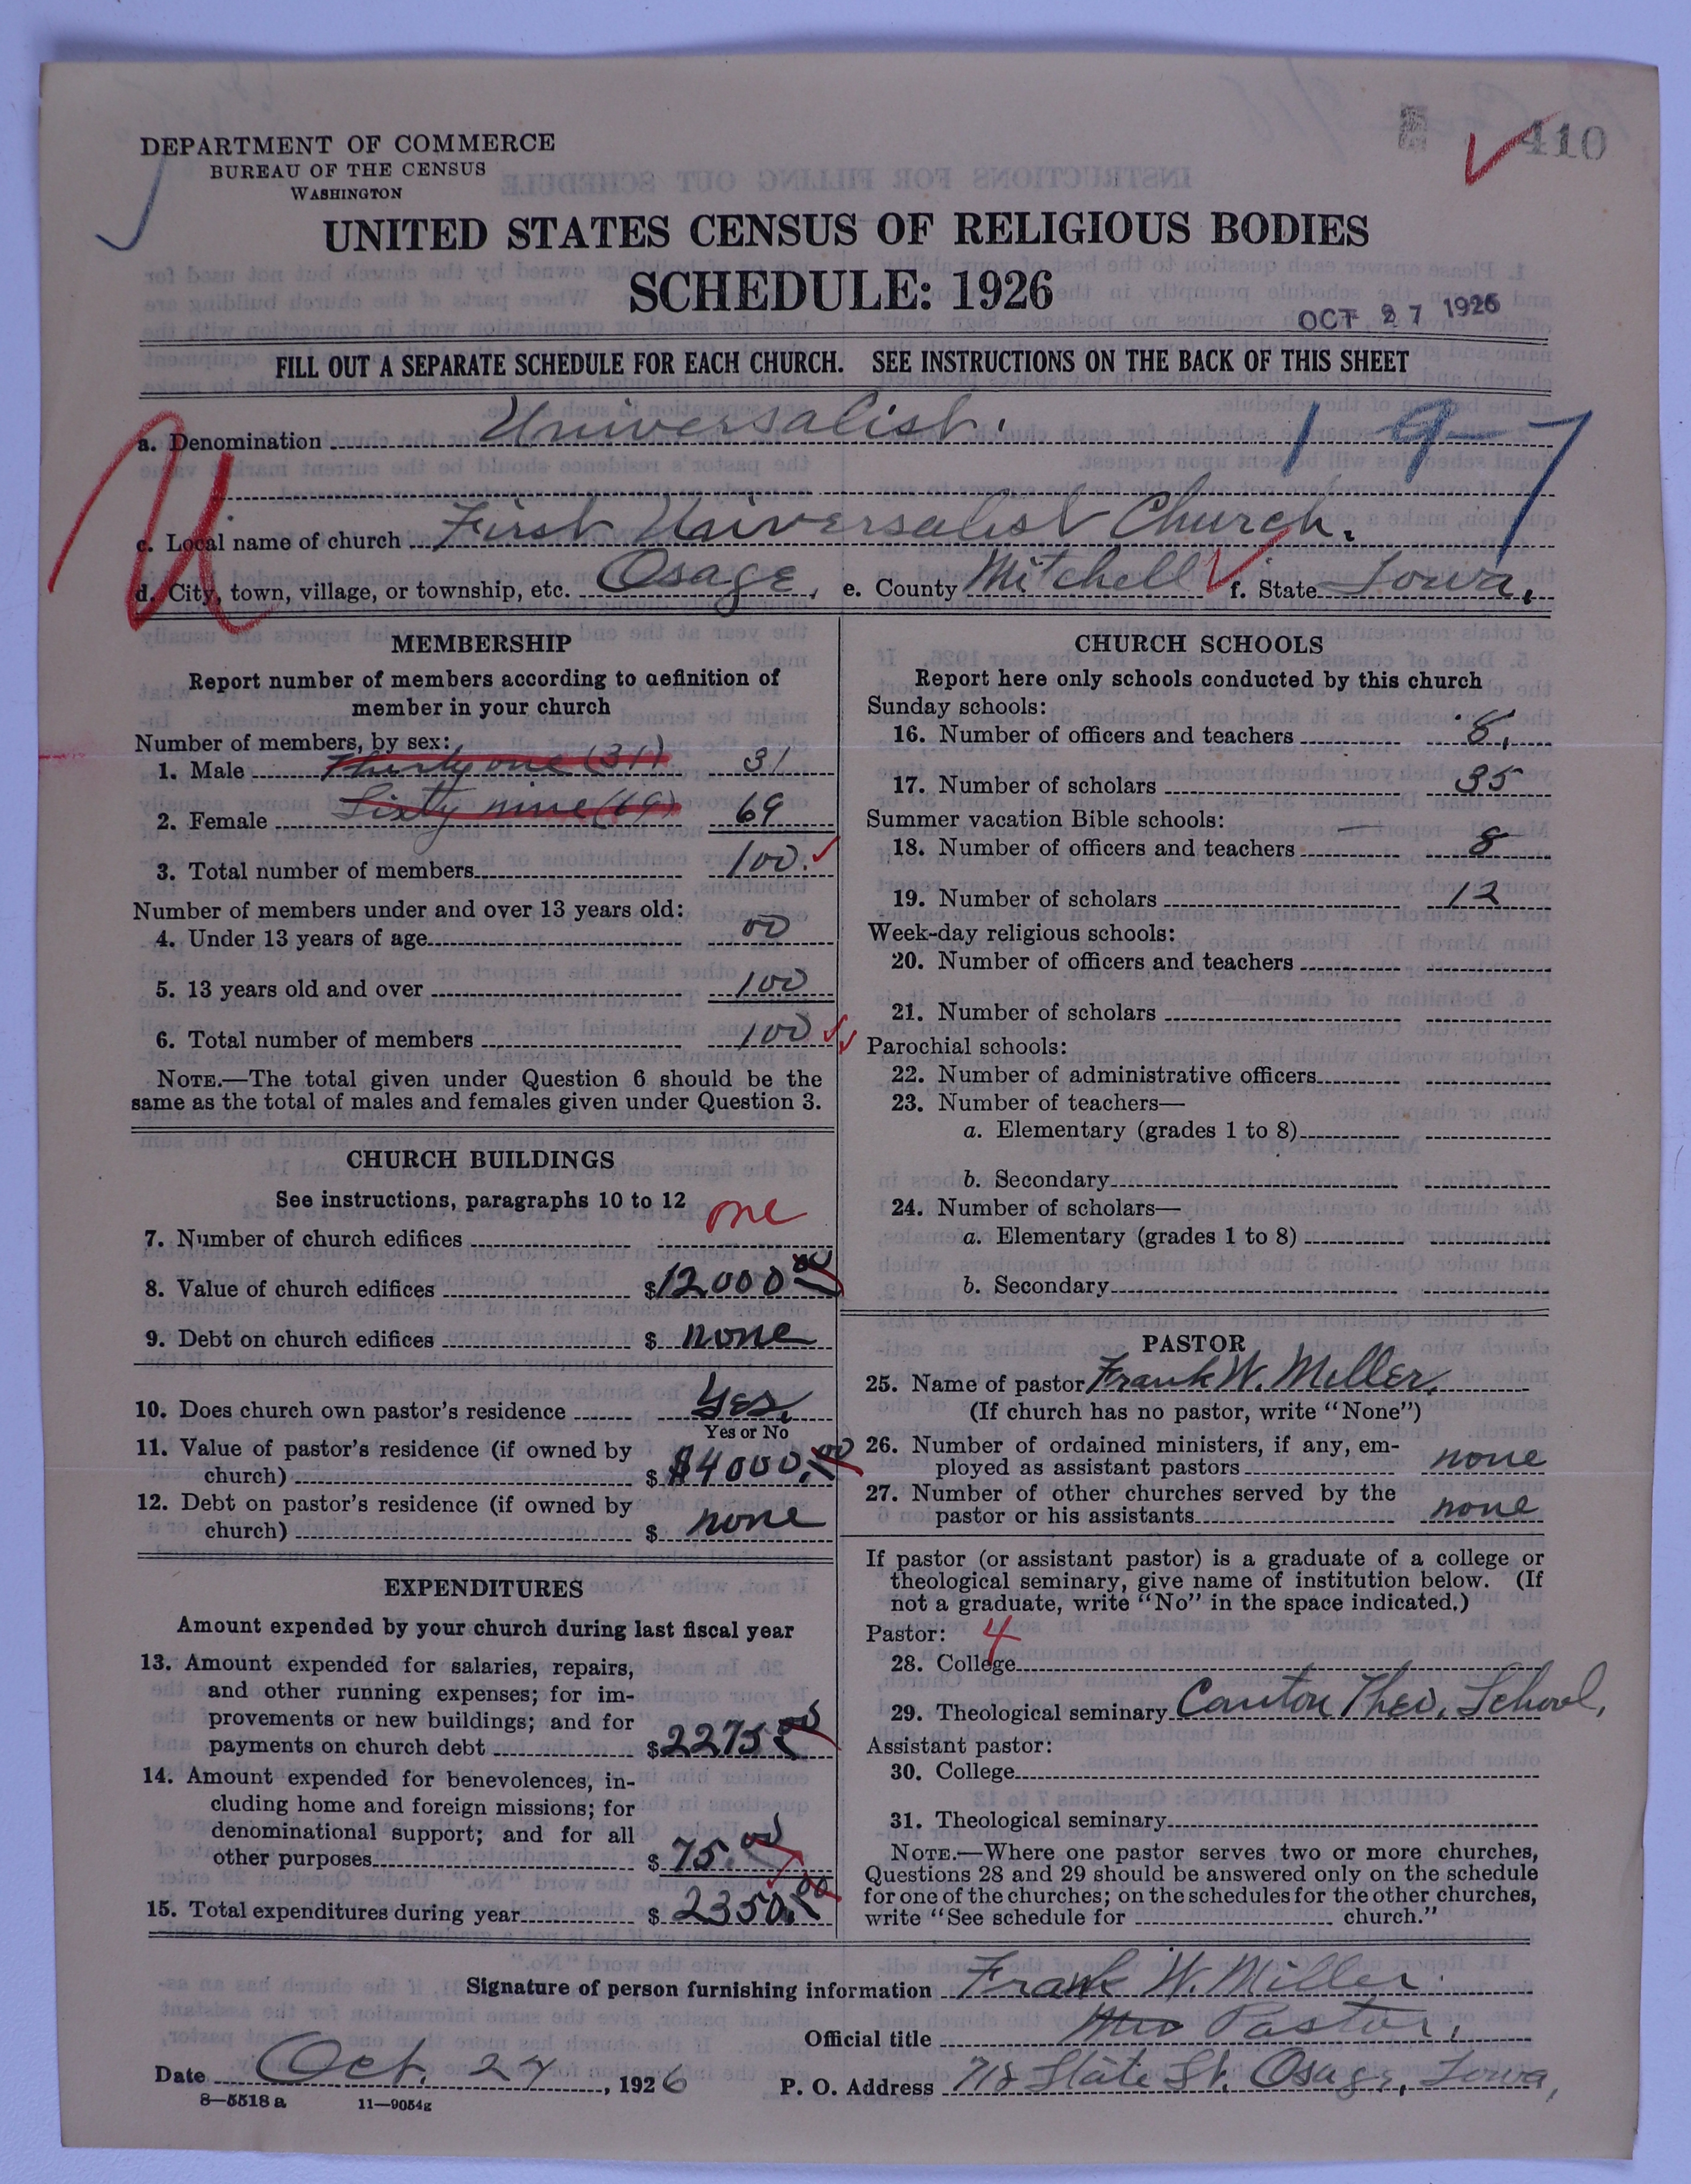 DEPARTMENT OF COMMERCE
BUREAU OF THE CENSUS
WASHINGTON
410
UNITED STATES CENSUS OF RELIGIOUS BODIES
SCHEDULE: 1926
OCT 27 1926
FILL OUT A SEPARATE SCHEDULE FOR EACH CHURCH. SEE INSTRUCTIONS ON THE BACK OF THIS SHEET
a. Denomination Universalist.
1 9-7
U
c. Local name of church First Universalist Church.
d. City, town, village, or township, etc. Osage, e. County Mitchell f. State Iowa,
MEMBERSHIP
Report number of members according to definition of
member in your church
Number of members, by sex:
1. Male Thirty one (31) 31
2. Female Sixty nine (69) 69
3. Total number of members 100.
Number of members under and over 13 years old:
4. Under 13 years of age 00
5. 13 years old and over 100
6. Total number of members 100
NOTE.—The total given under Question 6 should be the
same as the total of males and females given under Question 3.
CHURCH BUILDINGS
See instructions, paragraphs 10 to 12
7. Number of church edifices one
8. Value of church edifices $12000.00
9. Debt on church edifices $ none
10. Does church own pastor's residence Yes.
Yes or No
11. Value of pastor's residence (if owned by
church) $ $4000.00
12. Debt on pastor's residence (if owned by
church) $ none
EXPENDITURES
Amount expended by your church during last fiscal year
13. Amount expended for salaries, repairs,
and other running expenses; for im-
provements or new buildings; and for
payments on church debt $2275.00
14. Amount expended for benevolences, in-
cluding home and foreign missions; for
denominational support; and for all
other purposes $ 75.00
15. Total expenditures during year $ 2350.00
CHURCH SCHOOLS
Report here only schools conducted by this church
Sunday schools:
16. Number of officers and teachers 8.
17. Number of scholars 35
Summer vacation Bible schools:
18. Number of officers and teachers 8
19. Number of scholars 12
Week-day religious schools:
20. Number of officers and teachers
21. Number of scholars
Parochial schools:
22. Number of administrative officers
23. Number of teachers—
a. Elementary (grades 1 to 8)
b. Secondary
24. Number of scholars—
a. Elementary (grades 1 to 8)
b. Secondary
PASTOR
25. Name of pastor Frank W. Miller.
(If church has no pastor, write "None")
26. Number of ordained ministers, if any, em-
ployed as assistant pastors none
27. Number of other churches served by the
pastor or his assistants none
If pastor (or assistant pastor) is a graduate of a college or
theological seminary, give name of institution below. (If
not a graduate, write "No" in the space indicated.)
Pastor: 4
28. College
29. Theological seminary Canton Theo. School,
Assistant pastor:
30. College
31. Theological seminary
NOTE.—Where one pastor serves two or more churches,
Questions 28 and 29 should be answered only on the schedule
for one of the churches; on the schedules for the other churches,
write "See schedule for church."
Signature of person furnishing information Frank W. Miller.
Official title Pastor.
Date Oct. 24, 1926 P. O. Address 718 State St. Osage, Iowa,
8—5518 a 11—9054g